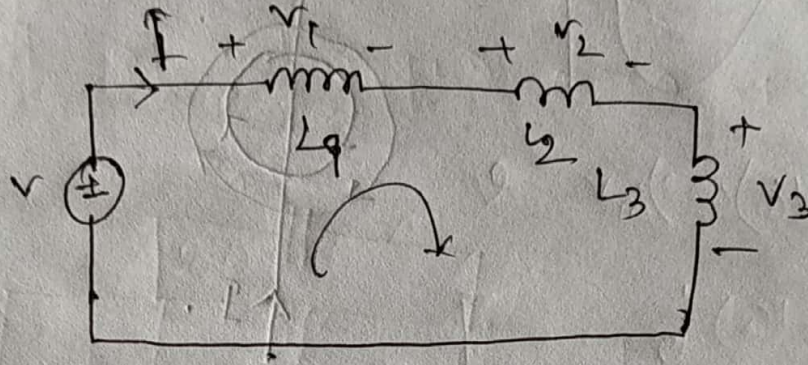 I + V1 - + V2 -
L1 L2 +
V ± L3 V3
-